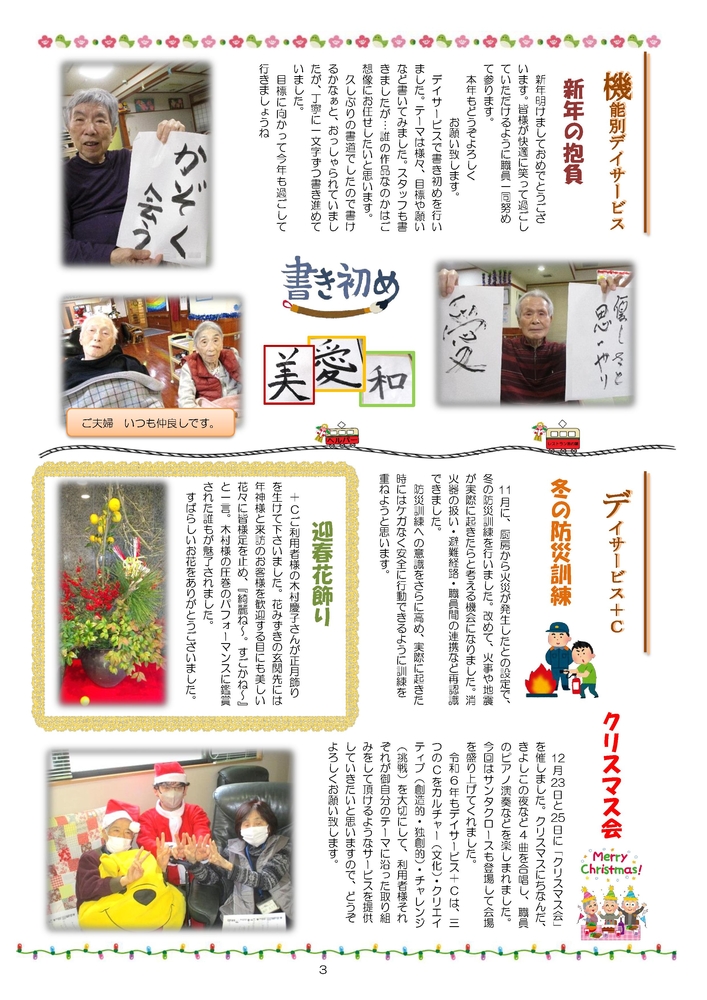 機能別デイサービス
新年の抱負
新年明けましておめでとうござ
います。皆様が快適に笑って過ごし
ていただけるように職員一同努め
て参ります。
本年もどうぞよろしく
お願い致します。
デイサービスで書き初めを行い
ました。テーマは様々、目標や願い
など書いてみました。スタッフも書
きましたが…誰の作品なのかはご
想像にお任せしたいと思います。
久しぶりの書道でしたので書け
るかなぁと、おっしゃられていまし
たが、丁寧に一文字ずつ書き進めて
いました。
目標に向かって今年も過ごして
行きましょうね
かぞく
会う
書き初め
優しさと
思いやり
愛
美
愛
和
ご夫婦　いつも仲良しです。
ヘルパー
デイサービス＋C
冬の防災訓練
11月に、厨房から火災が発生したとの設定で、
冬の防災訓練を行いました。改めて、火事や地震
が実際に起きたらと考える機会になりました。消
火器の扱い・避難経路・職員間の連携など再認識
できました。
防災訓練への意識をさらに高め、実際に起きた
時にはケガなく安全に行動できるように訓練を
重ねようと思います。
迎春花飾り
＋Cご利用者様の木村慶子さんが正月飾り
を生けて下さいました。花みずきの玄関先には
年神様と来訪のお客様を歓迎する目にも美しい
花々に皆様足を止め、『綺麗ね～。すごかね～』
と一言。木村様の圧巻のパフォーマンスに鑑賞
された誰もが魅了されました。
すばらしいお花をありがとうございました。
クリスマス会
12月23日と25日に「クリスマス会」
を催しました。クリスマスにちなんだ、
きよしこの夜など4曲を合唱し、職員
のピアノ演奏などを楽しまれました。
今回はサンタクロースも登場して会場
を盛り上げてくれました。
令和6年もデイサービス＋Cは、三
つのCをカルチャー（文化）・クリエイ
ティブ（創造的・独創的）・チャレンジ
（挑戦）を大切にして、利用者様それ
ぞれが御自分のテーマに沿った取り組
みをして頂けるようなサービスを提供
していきたいと思いますので、どうぞ
よろしくお願い致します。
Merry
Christmas!
3